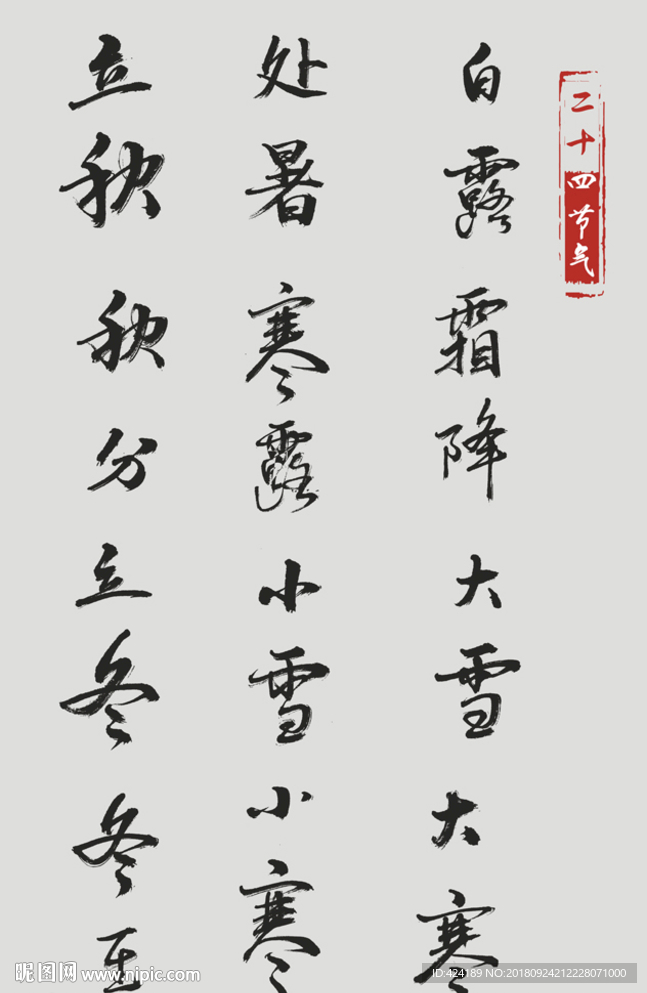 立秋
处暑
白露
秋分
寒露
霜降
立冬
小雪
大雪
冬至
小寒
大寒
二十四节气
昵图网 www.nipic.com
ID:424189 NO:20180924212228071000